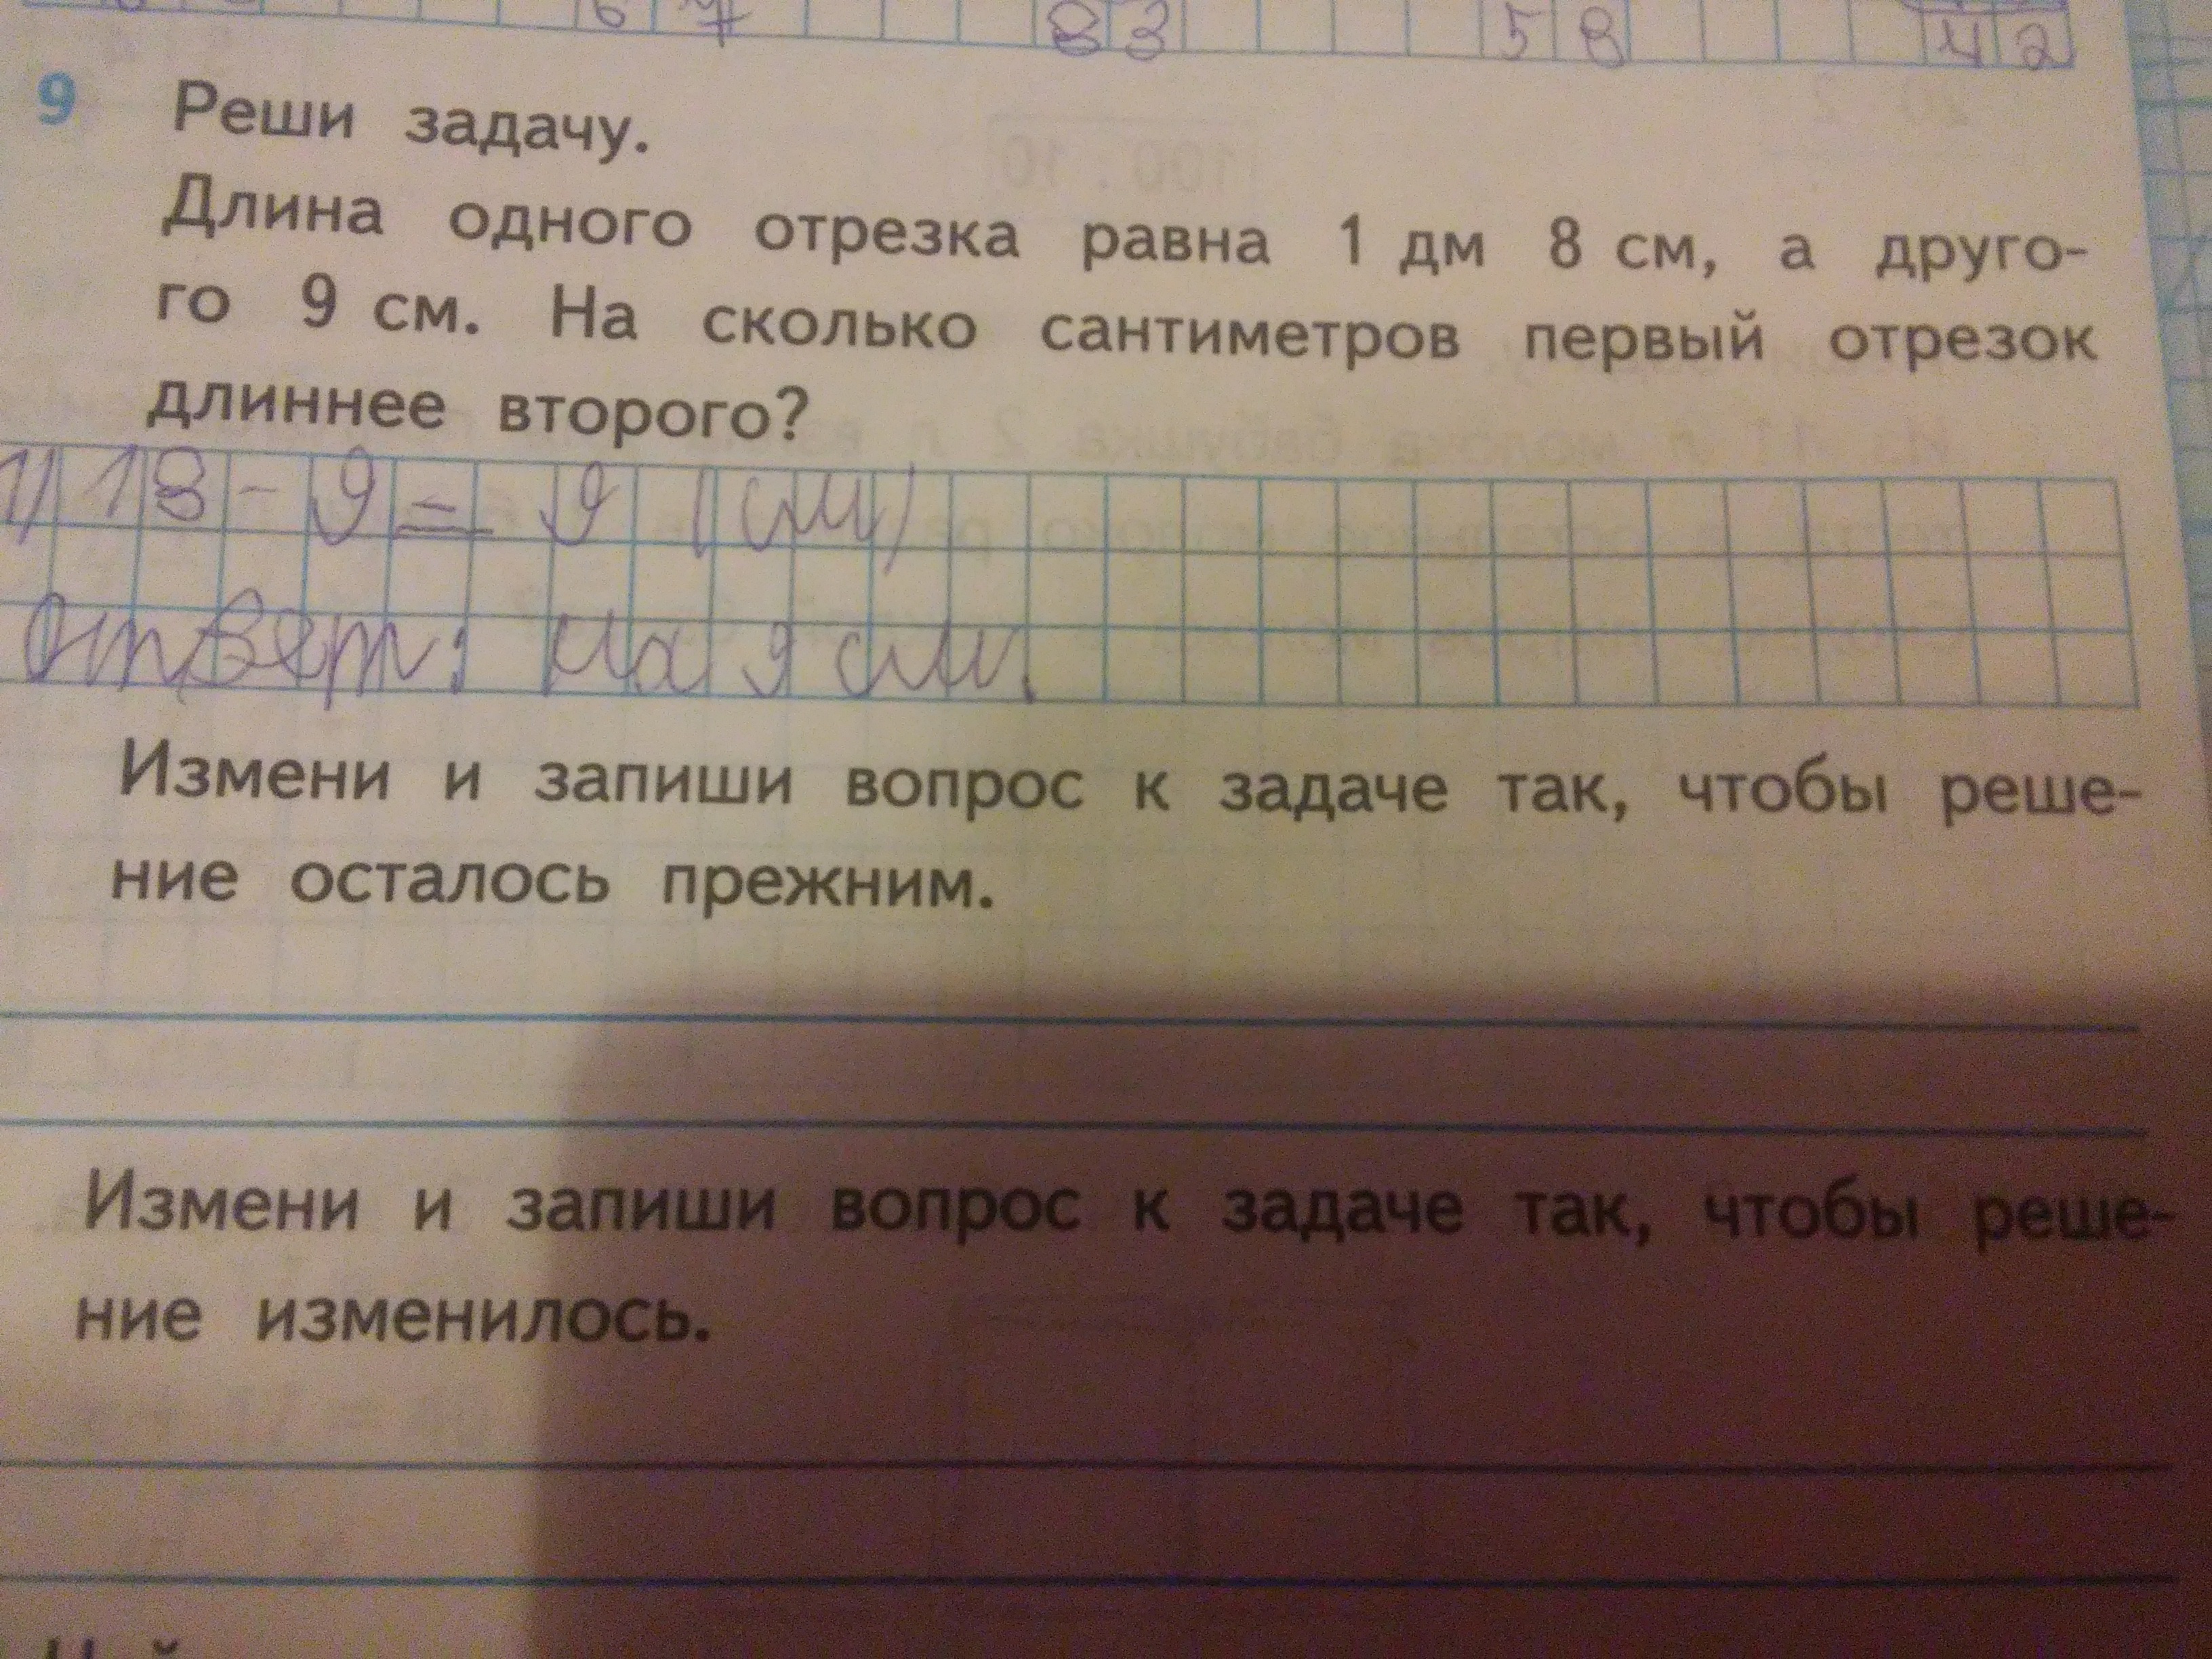 6 7 8 3 5 8 4 2
9 Реши задачу.
Длина одного отрезка равна 1 дм 8 см, а друго-
го 9 см. На сколько сантиметров первый отрезок
длиннее второго?
1) 18 - 9 = 9 (см)
Ответ: на 9 см.
Измени и запиши вопрос к задаче так, чтобы реше-
ние осталось прежним.
Измени и запиши вопрос к задаче так, чтобы реше-
ние изменилось.